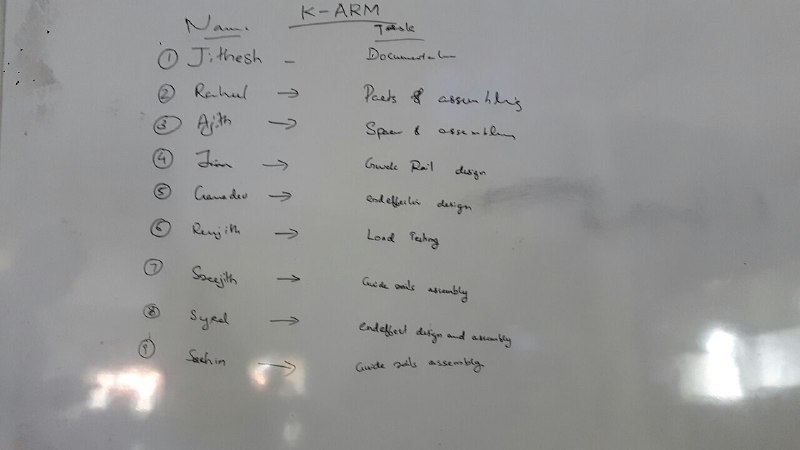 K-ARM
Name Task
① Jithesh - Documentation
② Rahul → Parts & assembling
③ Ajith → & assembling
④ → Guide Rail design
⑤ → endeffector design
⑥ Renjith → Load Testing
⑦ Sreejith → Guide rails assembly
⑧ Syed → endeffect design and assembly
⑨ Sachin → Guide rails assembly